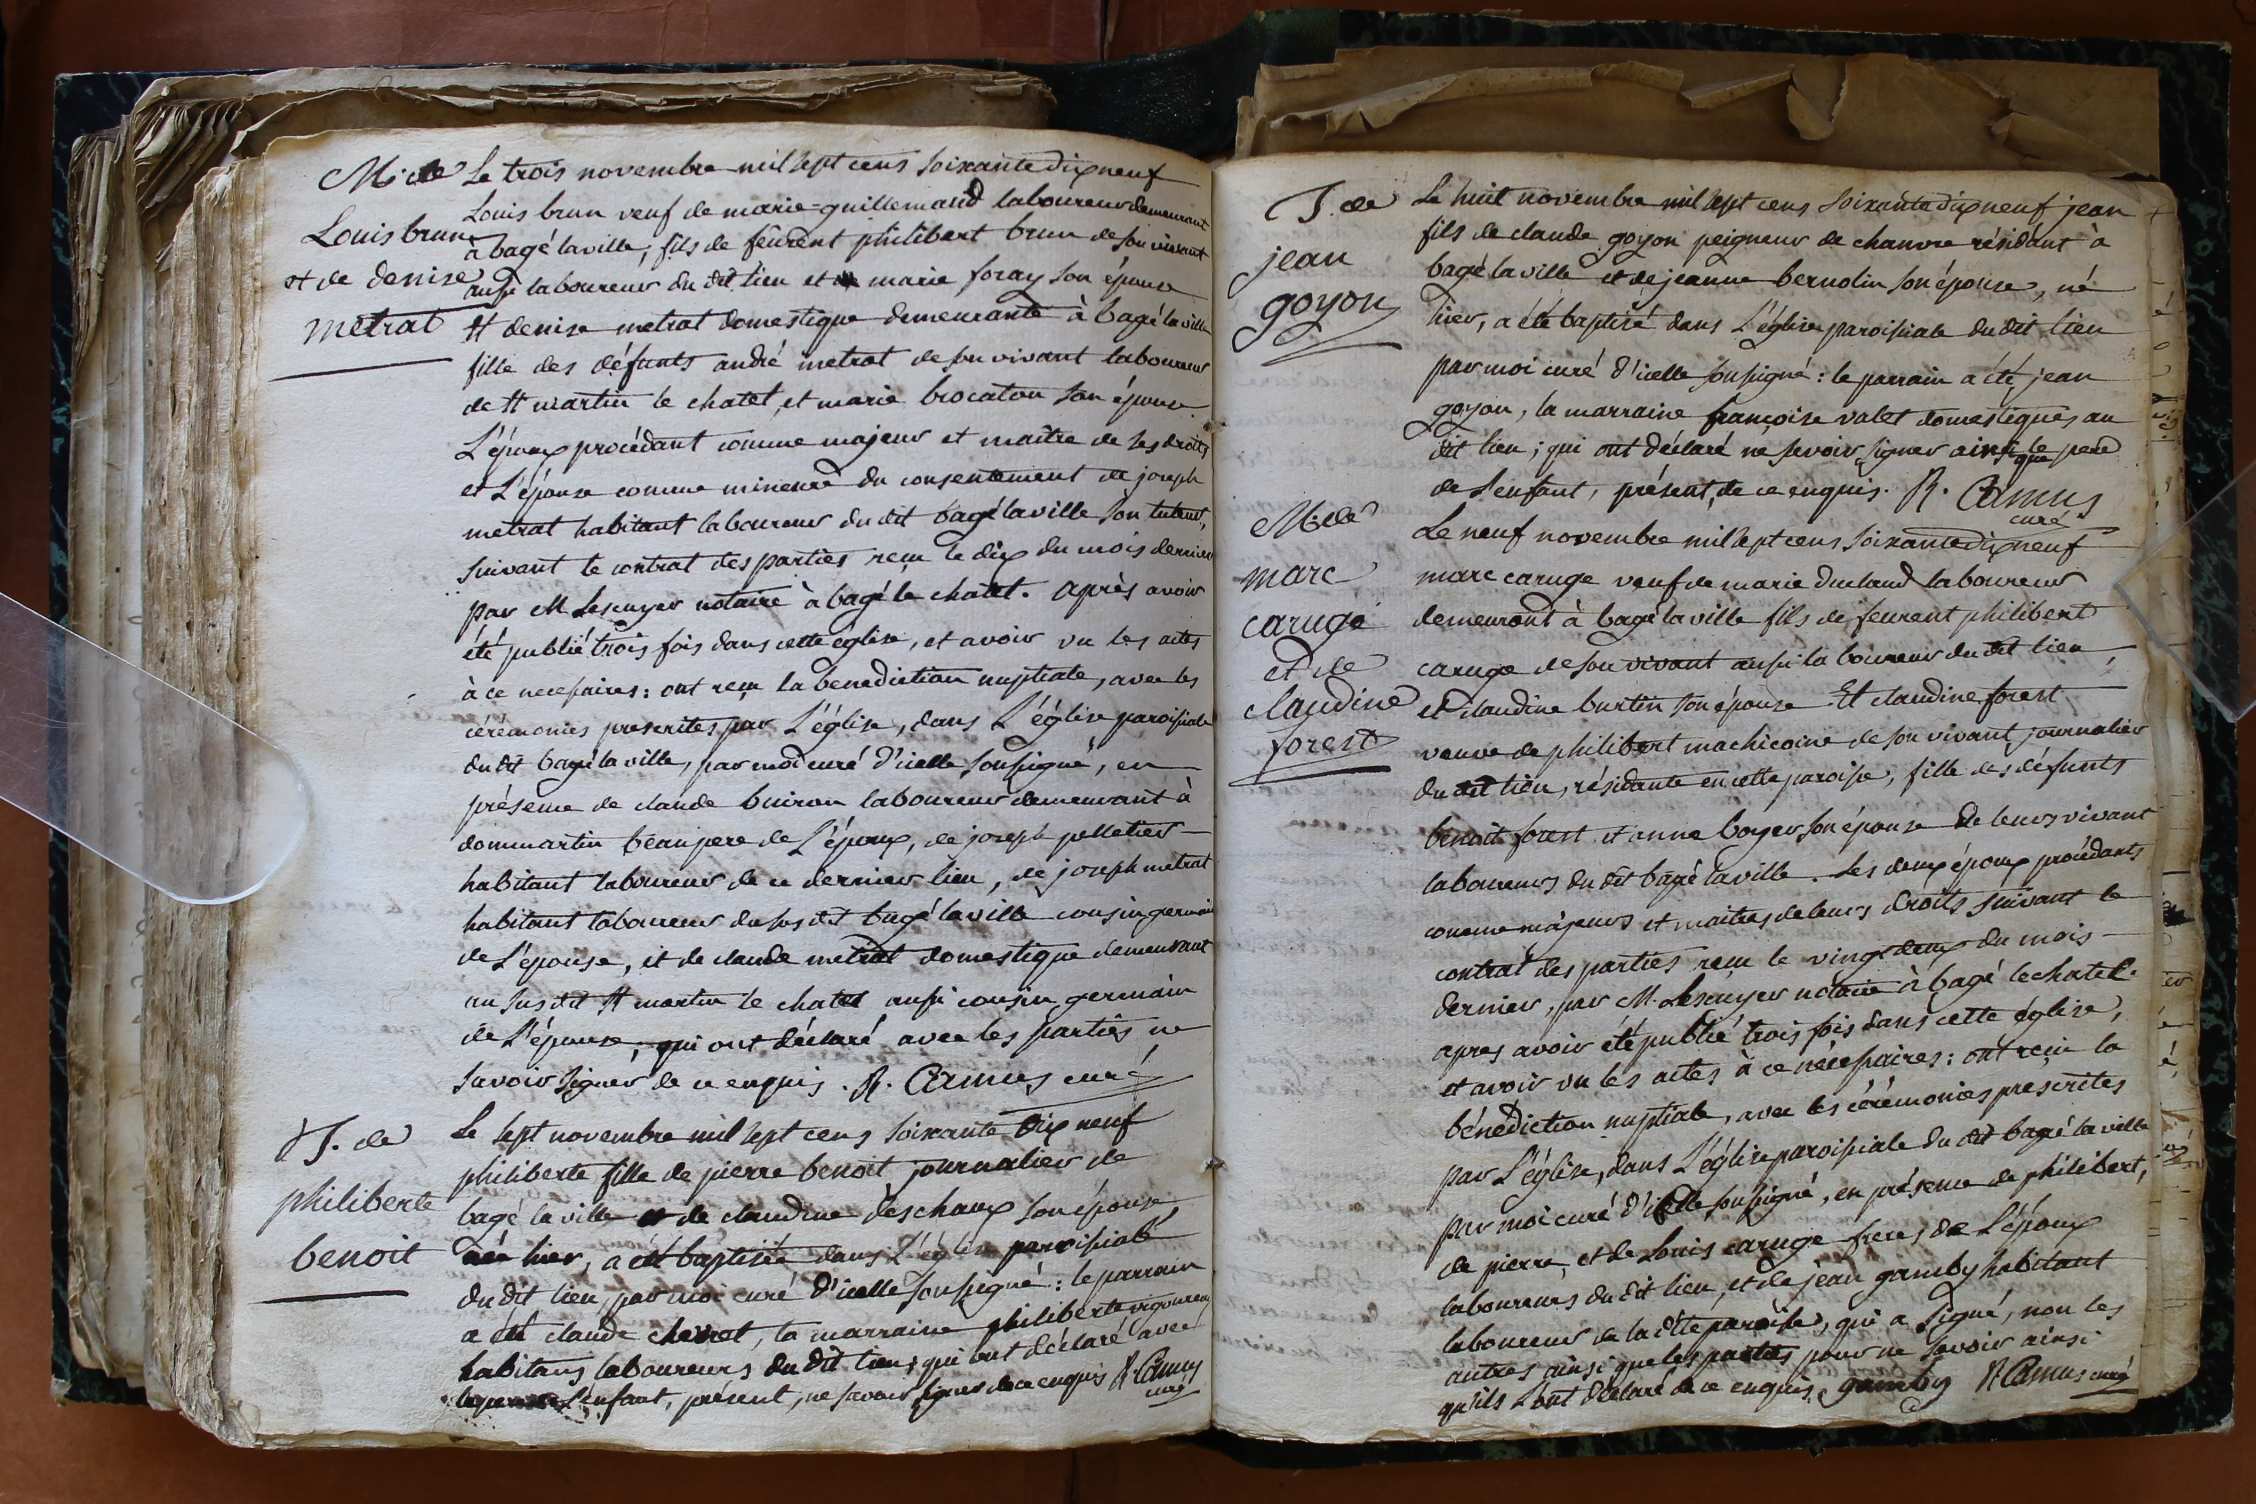 M. de
Louis brun
et de denise
metrat
Le trois novembre mil sept cens soixante dix neuf
Louis brun veuf de marie guillemaud laboureur demeurant
à bagé la ville, fils de feurent philibert brun de son vivant
aussi laboureur du dit lieu et marie foray son épouse
Et denise metrat domestique demeurante à bagé la ville
fille des défunts andré metrat de son vivant laboureur
de St martin le chatel et marie brocaton son épouse.
L'époux procédant comme majeur et maitre de ses droits
et L'épouse comme mineure du consentement de joseph
metrat habitant laboureur du dit bagé la ville son tuteur,
suivant le contrat des parties reçu le dix du mois dernier
par M Lescuyer notaire à bagé le chatel. après avoir
été publié trois fois dans cette église, et avoir vu les actes
à ce necessaires: ont reçu la benediction nuptiale, avec les
cérémonies prescrites par L'église, dans L'église paroissiale
du dit bagé la ville, par moi curé d'icelle soussigné, en
présence de claude buiron laboureur demeurant à
dommartin beaupere de L'époux, de joseph pelletier
habitant laboureur de ce dernier lieu, de joseph metrat
habitant laboureur du sus dit bagé la ville cousin germain
de L'épouse, et de claude metrat domestique demeurant
au sus dit St martin le chatel aussi cousin germain
de L'épouse, qui ont déclaré avec les parties ne
savoir signer de ce enquis. R. Camus curé
T. de
philiberte
benoit
Le sept novembre mil sept cens soixante dix neuf
philiberte fille de pierre benoit journalier de
bagé la ville et de claudine deschaux son épouse,
née hier, a été baptisée dans L'église paroissiale
du dit lieu, par moi curé d'icelle soussigné: le parrain
a été claude chevret, la marraine philiberte vigoureux
habitans laboureurs du dit lieu; qui ont déclaré avec
le pere de L'enfant, présent, ne savoir signer de ce enquis R. Camus
curé
T. de
jean
goyon
Le huit novembre mil sept cens soixante dix neuf jean
fils de claude goyon peigneur de chanvre résidant à
bagé la ville et de jeanne bernolin son épouse, né
hier, a été baptisé dans L'église paroissiale du dit lieu
par moi curé d'icelle soussigné: le parrain a été jean
goyon, la marraine françoise valet domestiques au
dit lieu; qui ont déclaré ne savoir signer ainsi que le pere
de L'enfant, présent, de ce enquis. R. Camus
curé
M. de
marc
caruge
et de
claudine
forest
Le neuf novembre mil sept cens soixante dix neuf
marc caruge veuf de marie duclaud laboureur
demeurant à bagé la ville fils de feurent philibert
caruge de son vivant aussi laboureur du dit lieu,
et claudine burtin son épouse. Et claudine forest
veuve de philibert machicoine de son vivant journalier
du dit lieu, résidante en cette paroisse, fille des défunts
benoit forest et anne boyer son épouse de leurs vivant
laboureurs du dit bagé la ville. Les deux époux procédants
comme majeurs et maitres de leurs droits suivant le
contrat des parties reçu le vingt deux du mois
dernier, par M. Lescuyer notaire à bagé le chatel.
apres avoir été publié trois fois dans cette église,
et avoir vu les actes à ce nécessaires: ont reçu la
bénédiction nuptiale, avec les cérémonies prescrites
par L'église, dans L'église paroissiale du dit bagé la ville
par moi curé d'icelle soussigné, en présence de philibert,
de pierre, et de Louis caruge freres de L'époux
laboureurs du dit lieu, et de jean gamby habitant
laboureur de la dite paroisse, qui a signé, non les
autres ainsi que les parties pour ne savoir ainsi
qu'ils L'ont déclaré de ce enquis. gamby R Camus curé